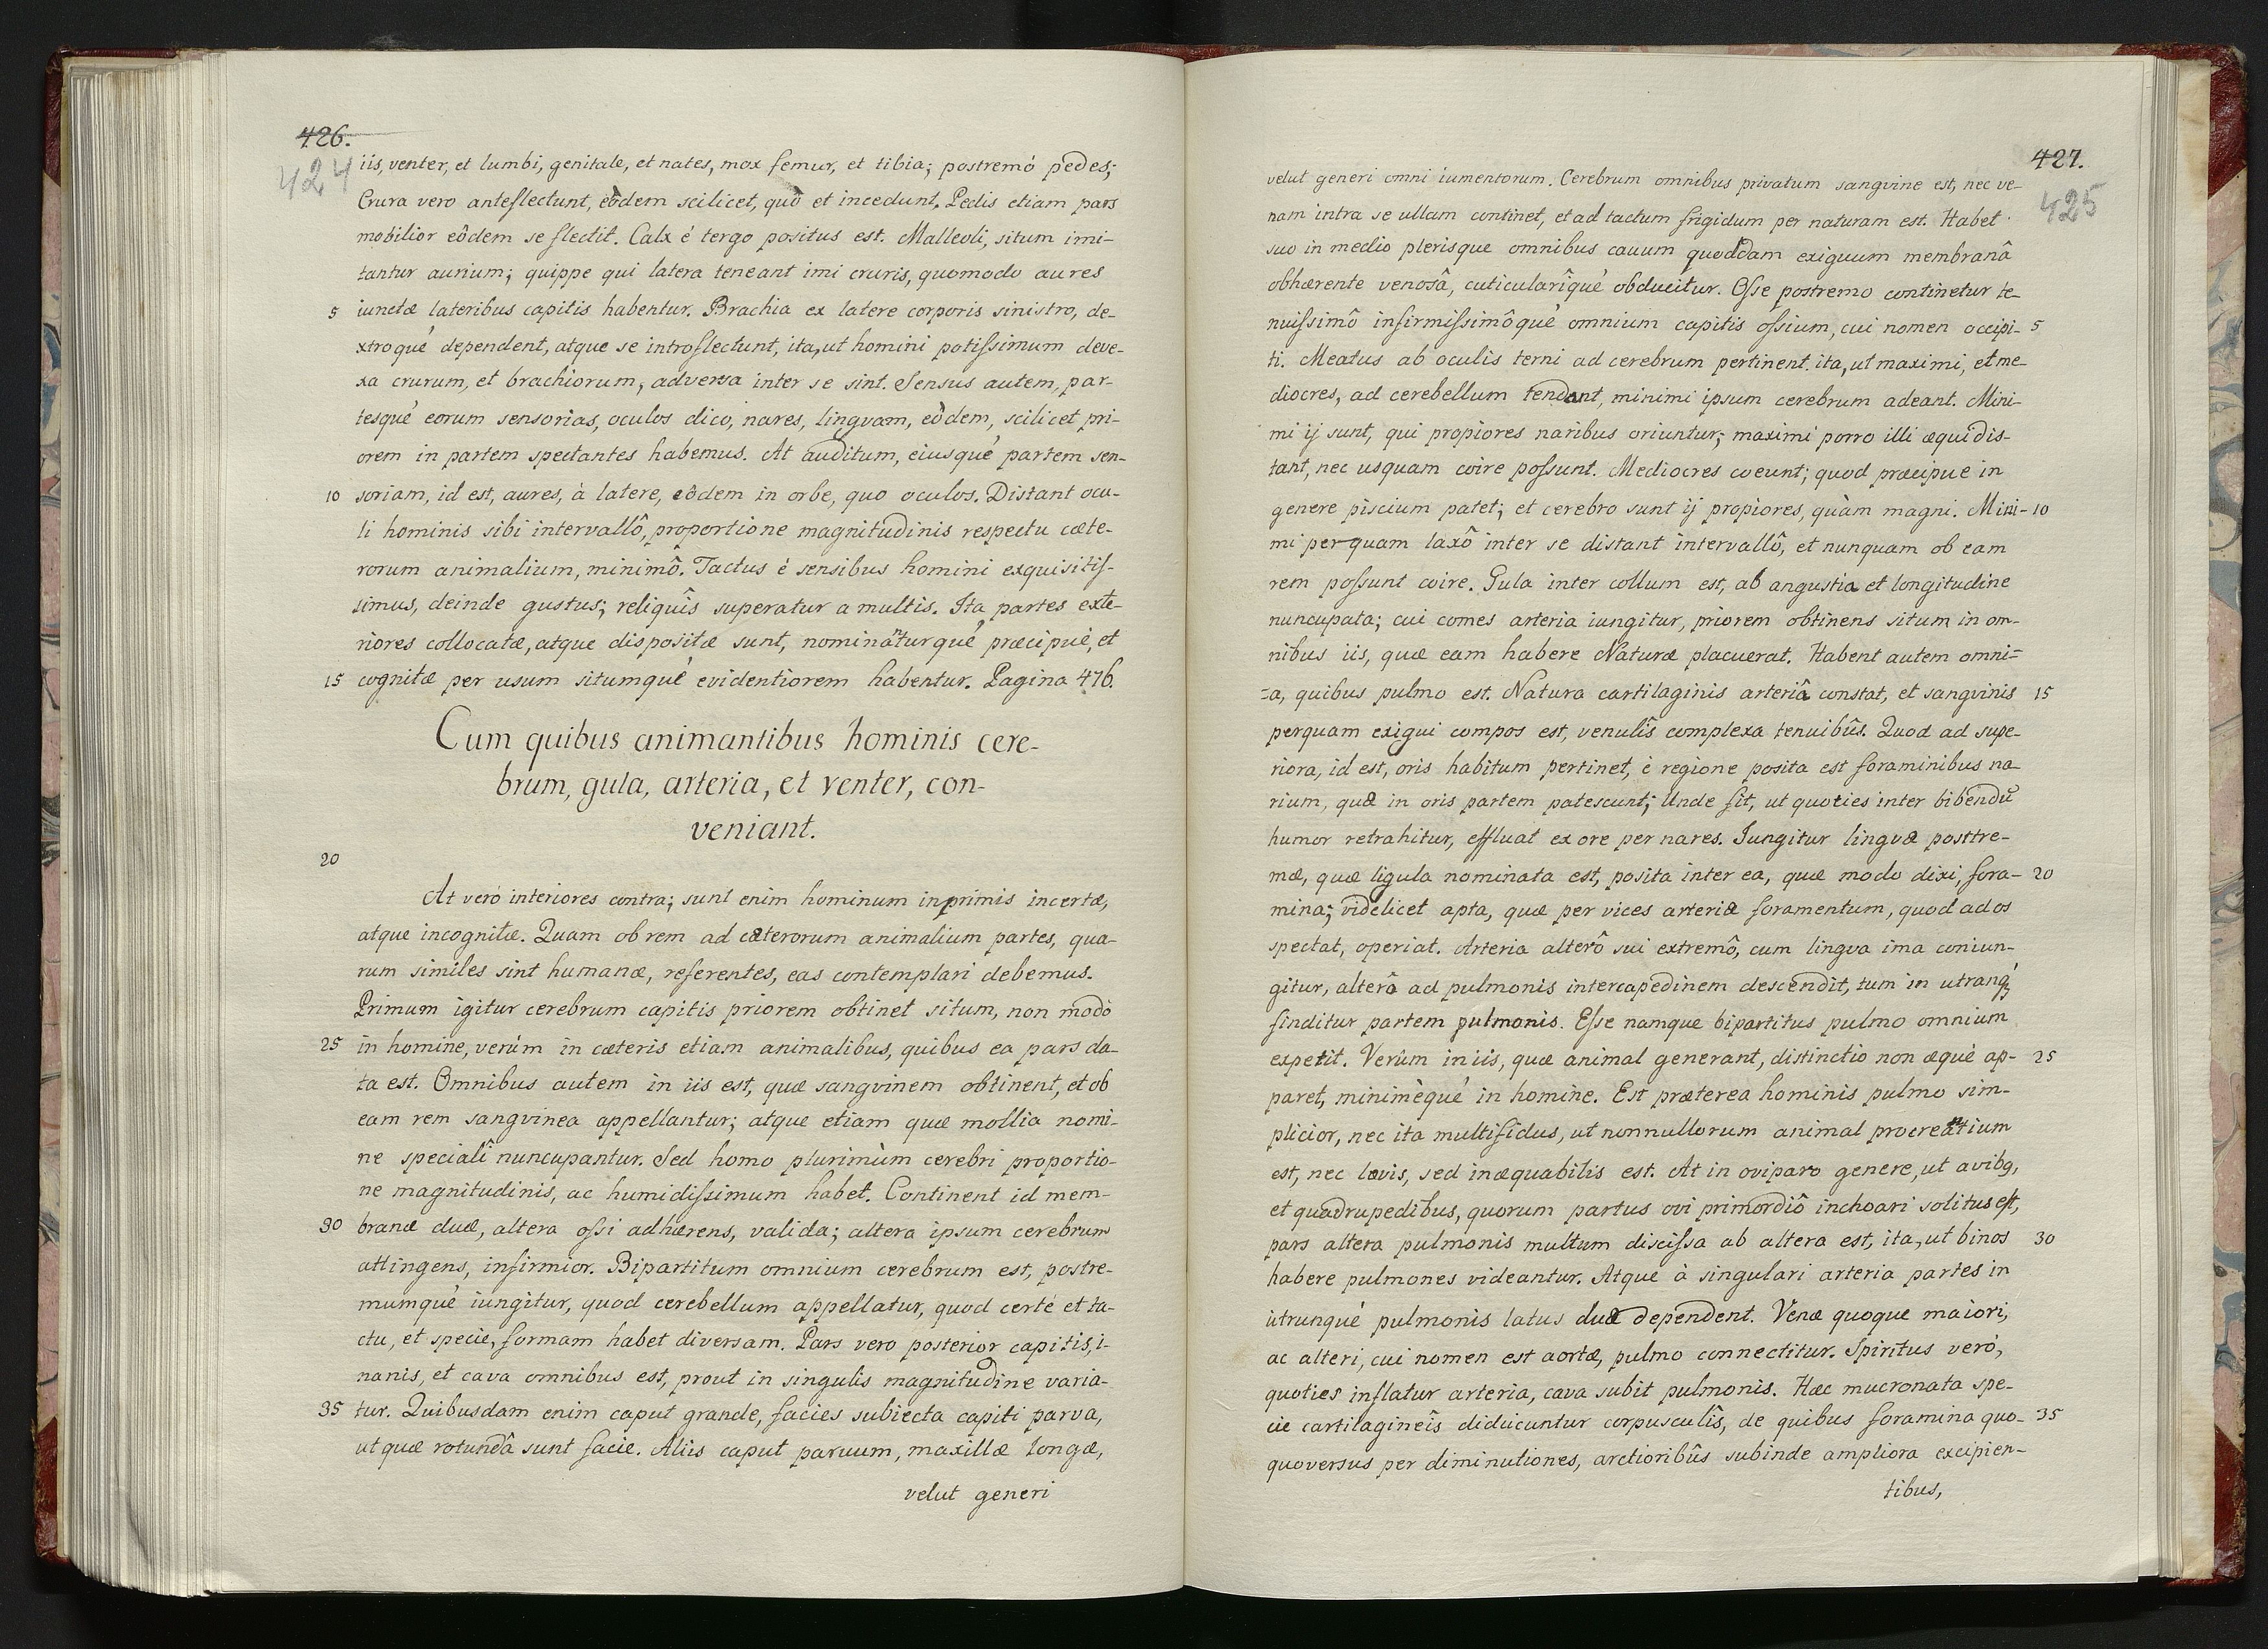 426.
424
iis, venter, et lumbi, genitale, et nates, mox femur, et tibia; postremò pedes;
Crura vero anteflectunt, eòdem scilicet, quò et incedunt. Pedis etiam pars
mobilior eôdem se flectit. Calx é tergo positus est. Malleoli, situm imi-
tantur aurium; quippe qui latera teneant imi cruris, quomodo aures
5 iunctæ lateribus capitis habentur. Brachia ex latere corporis sinistro, de-
xtroquè dependent, atque se introflectunt, ita, ut homini potissimum deve-
xa crurum, et brachiorum, adversa inter se sint. Sensus autem, par-
tesquè eorum sensorias, oculos dico, nares, lingvam, eòdem, scilicet pri-
orem in partem spectantes habemus. At auditum, eiusquè partem sen-
10 soriam, id est, aures, à latere, eôdem in orbe, quo oculos. Distant ocu-
li hominis sibi intervallô, proportione magnitudinis respectu cæte-
rorum animalium, minimô. Tactus é sensibus homini exquisitis-
simus, deinde gustus; reliquîs superatur a multis. Ita partes exte-
riores collocatæ, atque dispositæ sunt, nominanturquè præcipuè, et
15 cognitæ per usum situmquè evidentiorem habentur. Pagina 476.
Cum quibus animantibus hominis cere-
brum, gula, arteria, et venter, con-
veniant.
20
At verò interiores contra; sunt enim hominum inprimis incertæ,
atque incognitæ. Quam ob rem ad cæterorum animalium partes, qua-
rum similes sint humanæ, referentes, eas contemplari debemus.
Primum igitur cerebrum capitis priorem obtinet situm, non modò
25 in homine, verùm in cæteris etiam animalibus, quibus ea pars da-
ta est. Omnibus autem in iis est, quæ sangvinem obtinent, et ob
eam rem sangvinea appellantur; atque etiam quæ mollia nomi-
ne speciali nuncupantur. Sed homo plurimùm cerebri proportio-
ne magnitudinis, ac humidissimum habet. Continent id mem-
30 branæ duæ, altera ossi adhærens, valida; altera ipsum cerebrum
attingens, infirmior. Bipartitum omnium cerebrum est, postre-
mumquè iungitur, quod cerebellum appellatur, quod certé et ta-
ctu, et specie, formam habet diversam. Pars vero posterior capitis, i-
nanis, et cava omnibus est, prout in singulis magnitudine varia-
35 tur. Quibusdam enim caput grande, facies subiecta capiti parva,
ut quæ rotundâ sunt facie. Aliis caput paruum, maxillæ longæ,
velut generi
427.
425
velut generi omni iumentorum. Cerebrum omnibus privatum sangvine est, nec ve-
nam intra se ullam continet, et ad tactum frigidum per naturam est. Habet
suo in medio plerisque omnibus cauum quoddam exiguum membranâ
obhærente venosâ, cuticularîquè obducitur. Osse postremo continetur te-
nuissimô infirmissimôquè omnium capitis ossium, cui nomen occipi- 5
ti. Meatus ab oculis terni ad cerebrum pertinent. ita, ut maximi, et me-
diocres, ad cerebellum tendant, minimi ipsum cerebrum adeant. Mini-
mi ij sunt, qui propiores naribus oriuntur; maximi porro illi æquidis-
tant, nec usquam coire possunt. Mediocres coeunt; quod præcipue in
genere piscium patet; et cerebro sunt ij propiores, quàm magni. Mini- 10
mi perquam laxô inter se distant intervallô, et nunquam ob eam
rem possunt coire. Gula inter collum est, ab angustia et longitudine
nuncupata; cui comes arteria iungitur, priorem obtinens situm in om-
nibus iis, quæ eam habere Naturæ placuerat. Habent autem omni=
=a, quibus pulmo est. Natura cartilaginis arteriâ constat, et sangvinis 15
perquam exigui compos est, venulîs complexa tenuibûs. Quod ad supe-
riora, id est, oris habitum pertinet, è regione posita est foraminibus na
rium, quæ in oris partem patescunt; Unde fit, ut quoties inter bibendũ
humor retrahitur, effluat ex ore per nares. Iungitur lingvæ posttre-
mæ, quæ ligula nominata est, posita inter ea, quæ modo dixi, fora- 20
mina; videlicet apta, quæ per vices arteriæ foramentum, quod ad os
spectat, operiat. Arteria alterô sui extremô, cum lingva ima coniun-
gitur, alterô ad pulmonis intercapedinem descendit, tum in utranq́;
finditur partem pulmonis. Esse namque bipartitus pulmo omnium
expetit. Verûm in iis, quæ animal generant, distinctio non æquè ap- 25
paret, minimèquè in homine. Est præterea hominis pulmo sim-
plicior, nec ita multifidus, ut nonnullorum animal procreantium
est, nec lævis, sed inæquabilis est. At in oviparo genere, ut avibq,
et quadrupedibus, quorum partus ovi primordiô inchoari solitus est,
pars altera pulmonis multum discissa ab altera est, ita, ut binos 30
habere pulmones videantur. Atque à singulari arteria partes in
utrunquè pulmonis latus duæ dependent. Venæ quoque maiori,
ac alteri, cui nomen est aortæ, pulmo connectitur. Spiritus verò,
quoties inflatur arteria, cava subit pulmonis. Hæc mucronata spe-
cie cartilagineîs diducuntur corpusculîs, de quibus foramina quo- 35
quoversus per diminutiones, arctioribûs subinde ampliora excipien-
tibus,